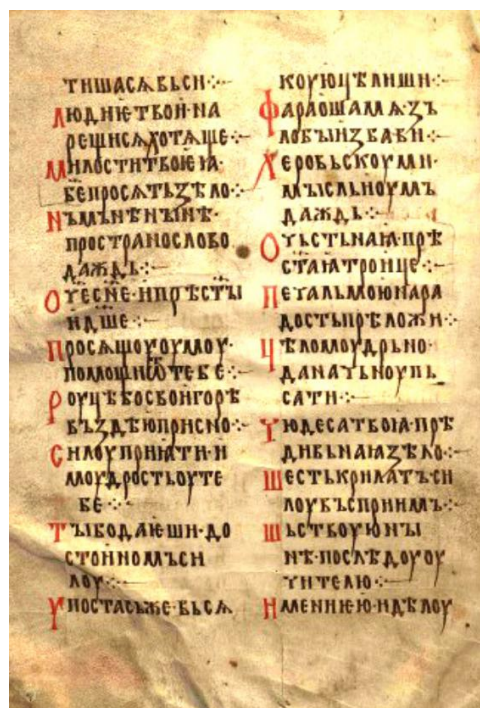 тишасѧ вьси·:~
Людиѥ твои на
рещисѧ хотѧще·:~
Милости твоѥѩ·
бе просѧтъ ѕѣло·
Нъ мънѣ нынѣ·
пространо слово
даждь·:~
Оч҃е сн҃е· и прѣст҃ы
и дш҃е·:~
Просѧщоуоумоу·
помощи ѿ тебе·:~
Роуцѣ бо свои горѣ
въздѣю присно·:~
Силоу приѩти и
моудрость оу те
бе·:~
Ты бо даѥши до
стоиномъ си
лоу·:~
Ѵпостась же вьсѧ
коую цѣлиши·:~
Фараоша мѧ зъ
лобы избави·:~
Херовьскоу ми·
мысль и оумъ
даждь·:~
О чьстьнаѩ· прѣ
стаѩ троице·:~
Печаль мою на ра
дость прѣложи·:~
Цѣломоудрьно·
да начьноу пь
сати·:~
Чюдеса твоѩ· прѣ
дивьнаѩ ѕѣло·:~
Шестькрилатъ си
лоу въсприимъ·:~
Шьствоую ны
нѣ· по слѣдоу оу
чителю·:~
Имении ѥю· и дѣлоу